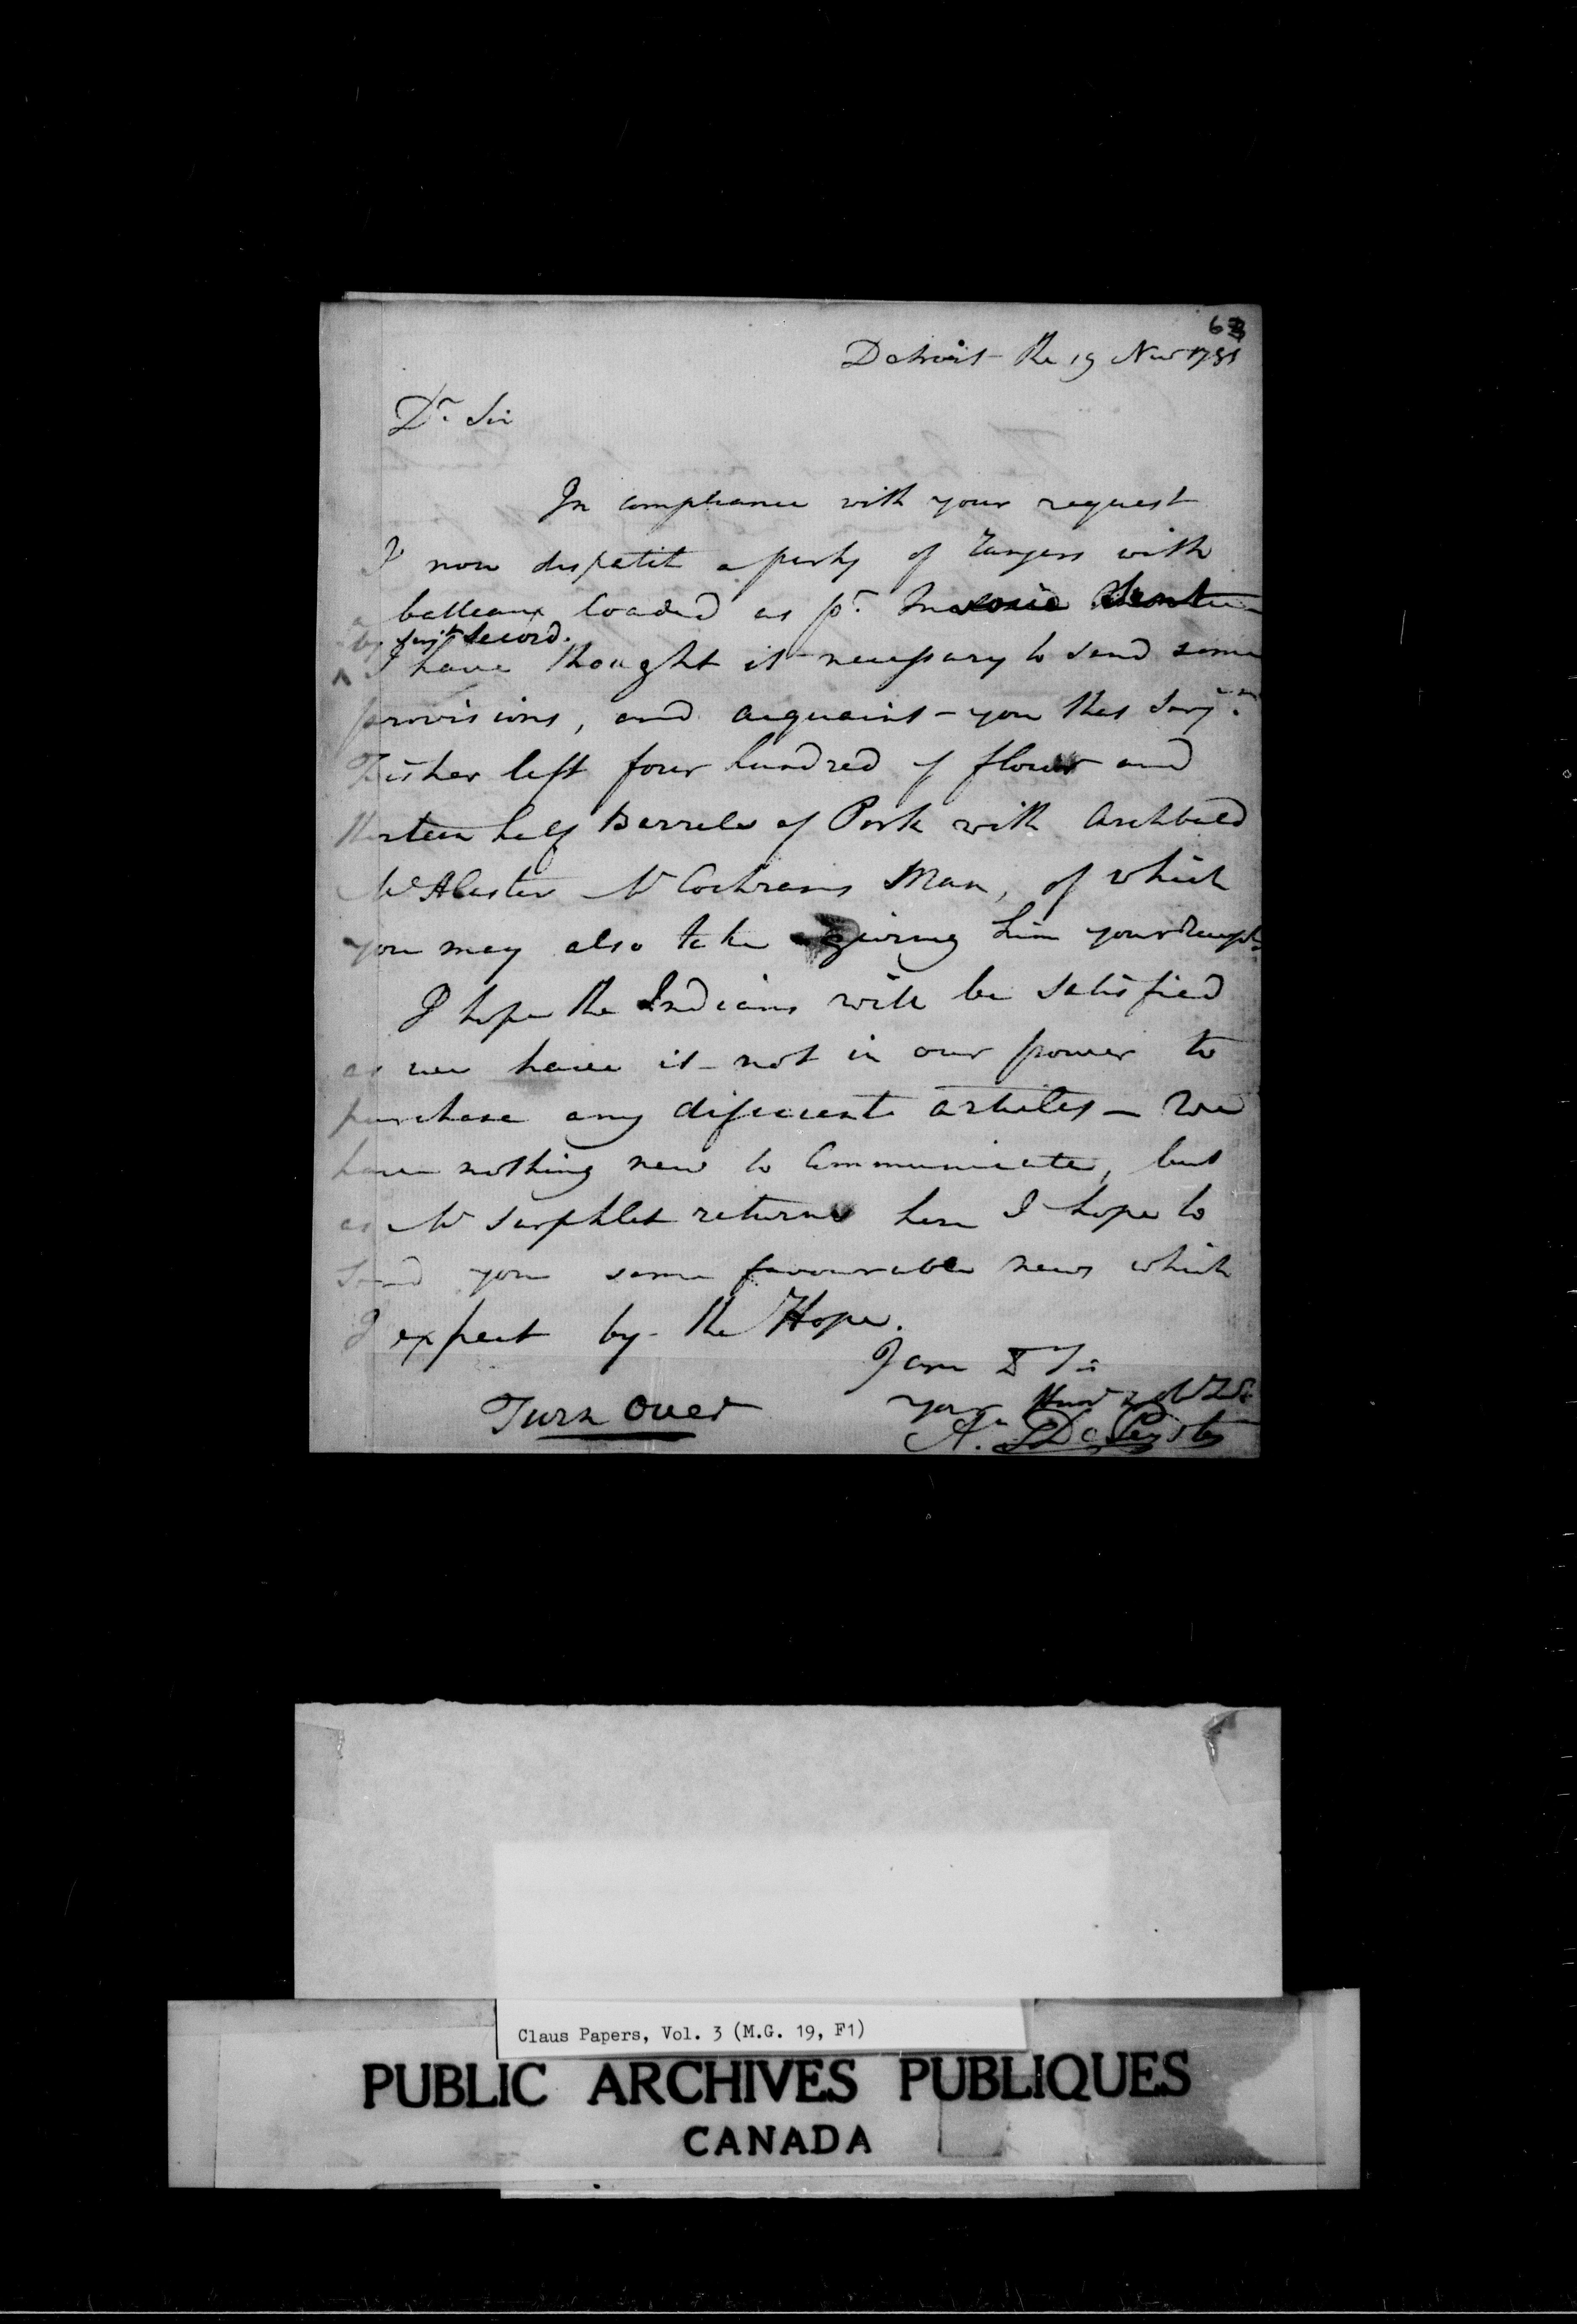 63
Detroit the 19 Novr 1781
Dr. Sir
In compliance with your request
I now dispatch a party of Rangers with
a batteaux loaded as pr. Invoice
by Serjt Secord.
I have thought it necessary to send some
provisions, and acquaint you that Serjt.
Fisher left four hundred of flour and
thirteen half Barrels of Pork with Archbald
McAlester Mr Cochrans Man, of which
you may also take giving him your Receipt
I hope the Indians will be satisfied
as we have it not in our power to
purchase any different articles — We
have nothing new to Communicate, but
as Mr Surphlet returns here I hope to
Send you some favourable news which
I expect by the Hope.
I am Dr Sir
Your Hum
Turn Over
At. S De Peyster
Claus Papers, Vol. 3 (M.G. 19, F1)
PUBLIC ARCHIVES PUBLIQUES
CANADA